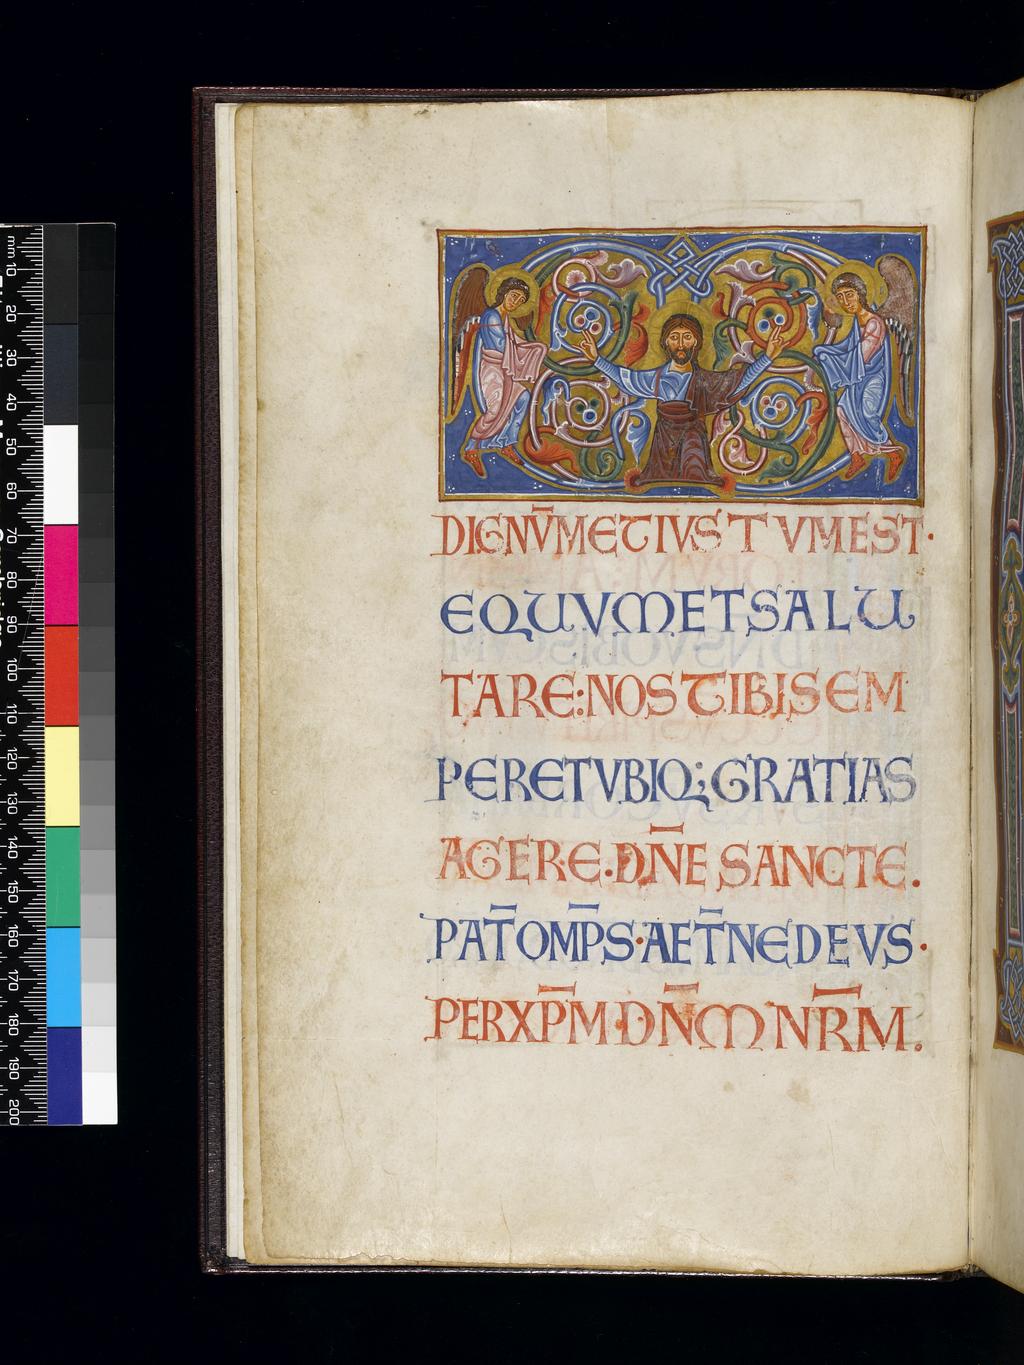 DIGNV̄METIVSTVMEST·
EQUVMETSALU
TARE:NOSTIBISEM
PERETVBIQ;GRATIAS
AGERE·DN̄ESANCTE.
PAT̄OM̄PS·AET̄NEDEVS·
PERXP̄M·DN̄MNR̄M.
mm 10 20 30 40 50 60 70 80 90 100 110 120 130 140 150 160 170 180 190 200